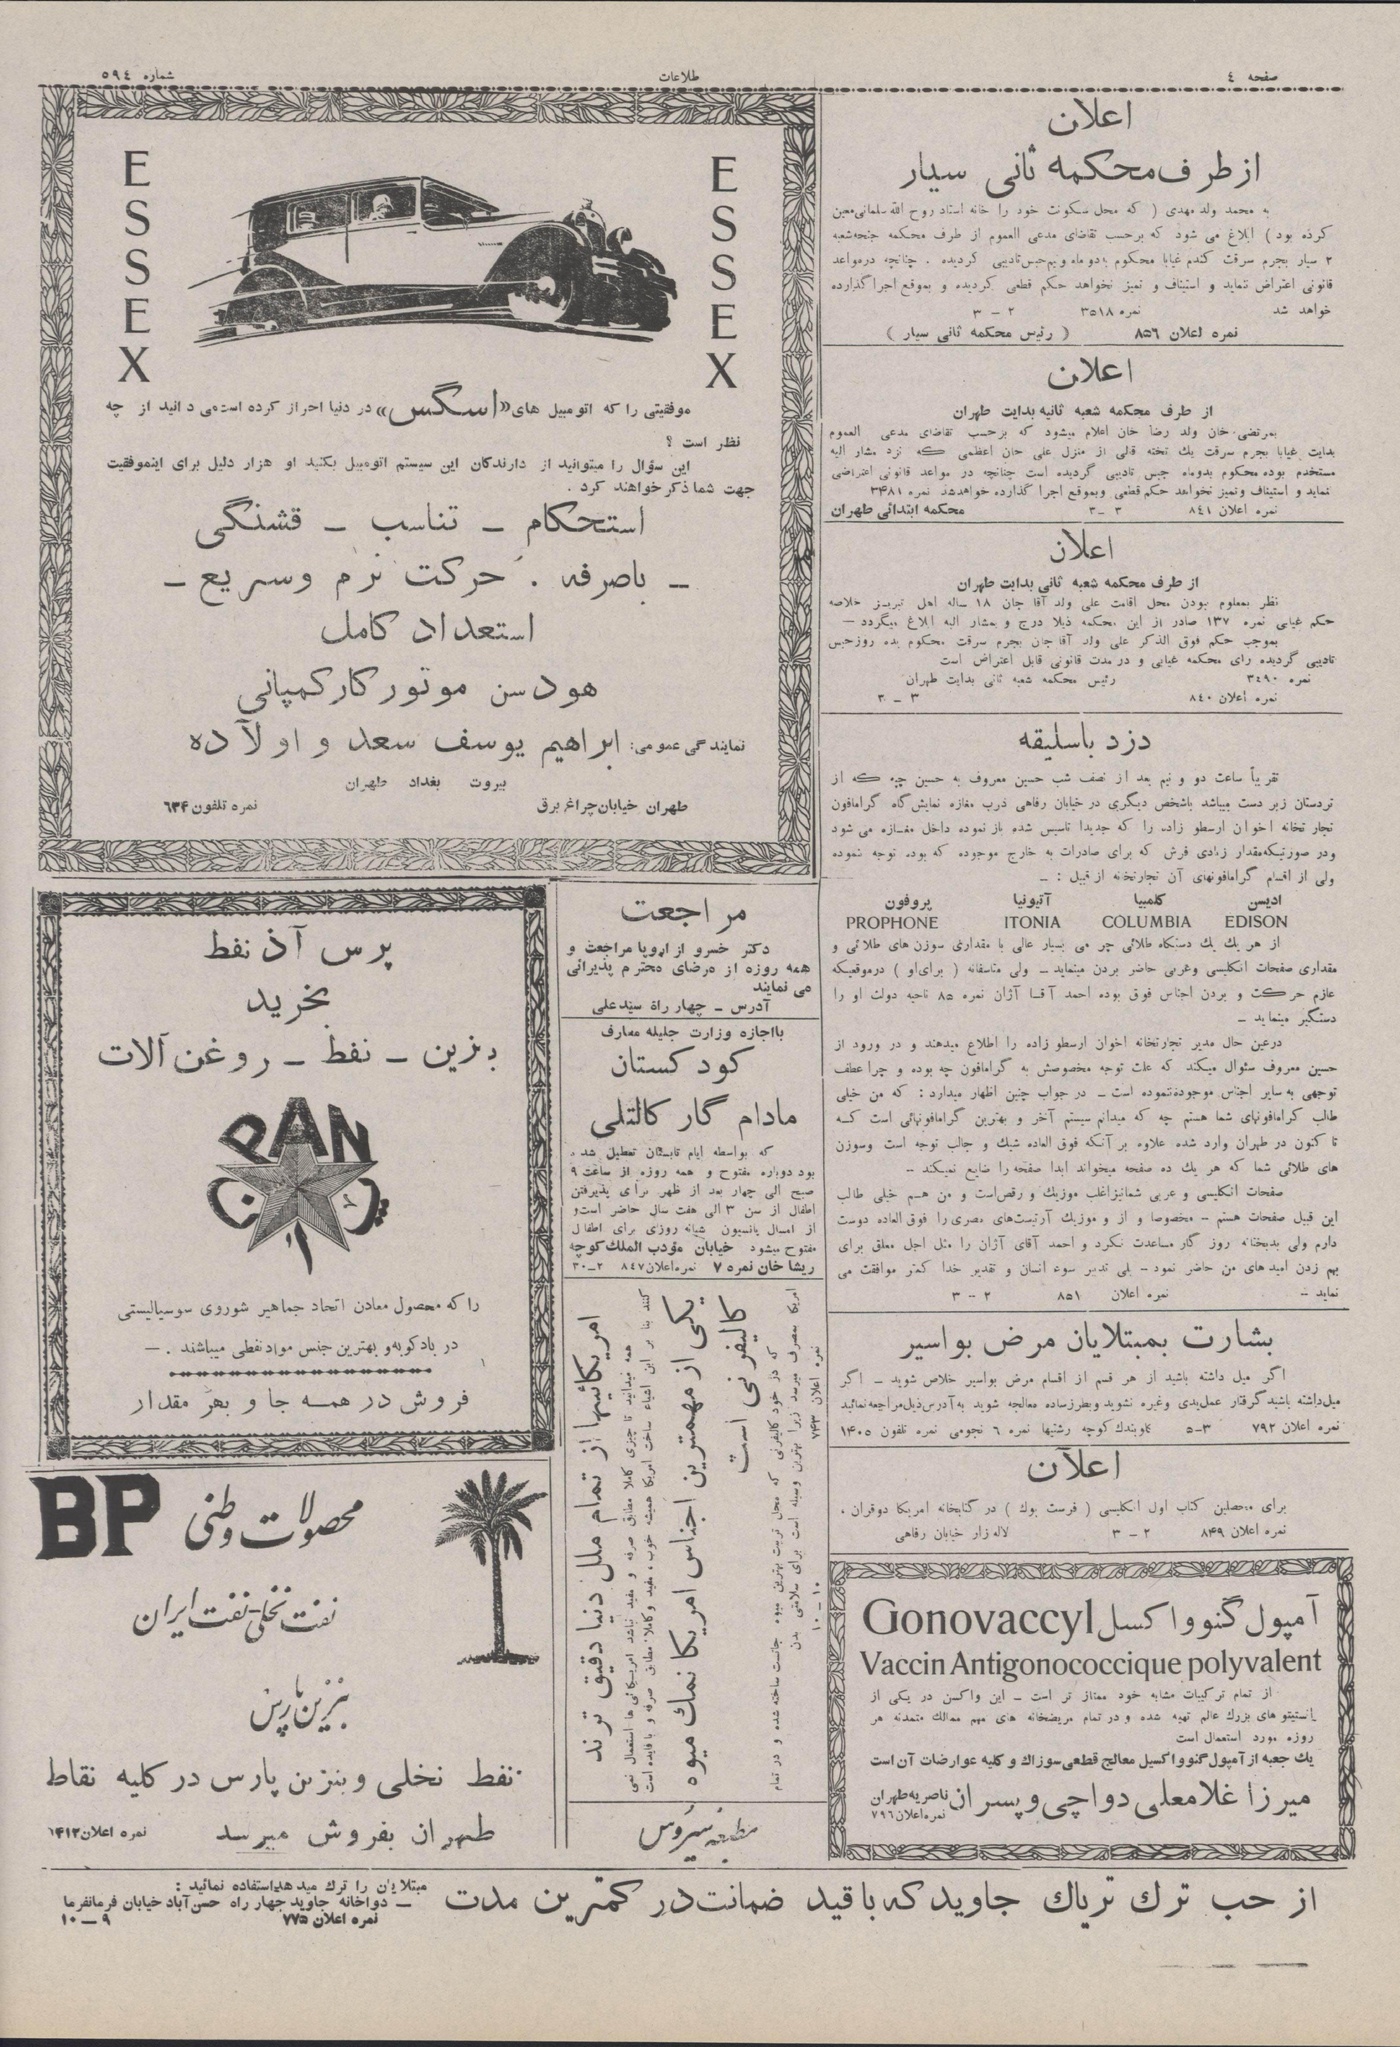 صفحه ٤
طلاعات
شماره ٥٩٤
اعلان
از طرف محکمه ثانی سیار
به محمد ولد مهدی ( که محل سکونت خود را خانه استاد روح الله سلمانی معین
کرده بود ) ابلاغ می شود که برحسب تقاضای مدعی العموم از طرف محکمه جنحه شعبه
۲ سیار بجرم سرقت کندم غیابا محکوم بدو ماه و نیم حبس تادیبی کردیده . چنانچه در مواعد
قانونی اعتراض ننماید و استیناف و تمیز نخواهد حکم قطعی کردیده و بموقع اجرا گذارده
خواهد شد نمره ۳٥۱۸ ۲ – ۳
نمره اعلان ۸٥٦ ( رئیس محکمه ثانی سیار )
اعلان
از طرف محکمه شعبه ثانیه بدایت طهران
بمرتضی خان ولد رضا خان اعلام میشود که برحسب تقاضای مدعی العموم
بدایت غیابا بجرم سرقت یك تخته قالی از منزل علی خان اعظمی که نزد مشار الیه
مستخدم بوده محکوم بدوماه حبس تادیبی گردیده است چنانچه در مواعد قانونی اعتراضی
ننماید و استیناف وتمیز نخواهد حکم قطعی وبموقع اجرا گذارده خواهد شد نمره ۳٤۸۱
نمره اعلان ۸٤۱ ۳ – ۳ محکمه ابتدائی طهران
اعلان
از طرف محکمه شعبه ثانی بدایت طهران
نظر بمعلوم بودن محل اقامت علی ولد آقا جان ۱۸ ساله اهل تبریز خلاصه
حکم غیابی نمره ۱۳۷ صادر از این محکمه ذیلا درج و بمشار الیه ابلاغ میگردد —
بموجب حکم فوق الذکر علی ولد آقا جان بجرم سرقت محکوم بده روز حبس
تادیبی گردیده رای محکمه غیابی و در مدت قانونی قابل اعتراض است
نمره ۳٤۹۰ رئیس محکمه شعبه ثانی بدایت طهران
نمره اعلان ۸٤۰ ۳ – ۳
دزد باسلیقه
تقریباً ساعت دو و نیم بعد از نصف شب حسین معروف به حسین چپه که از
تردستان زبر دست میباشد باشخص دیگری در خیابان رفاهی درب مغازه نمایش گاه گرامافون
تجار تخانه اخوان ارسطو زاده را که جدیدا تاسیس شده باز نموده داخل مغازه می شود
ودر صورتیکه مقدار زیادی فرش که برای صادرات به خارج موجوده که بوده توجه ننموده
ولی از اقسام گرامافونهای آن تجارتخانه از قبیل : –
ادیسن کلمبیا آتیونیا پروفون
EDISON COLUMBIA ITONIA PROPHONE
از هر یك یك دستگاه طلائی چر می بسیار عالی با مقداری سوزن های طلائی و
مقداری صفحات انکلیسی وغربی حاضر بردن مینماید – ولی متاسفانه ( برای او ) در موقعیکه
عازم حرکت و بردن اجناس فوق بوده احمد آقا آژان نمره ۸٥ ناحیه دولت او را
دستگیر مینماید –
درعین حال مدیر تجارتخانه اخوان ارسطو زاده را اطلاع میدهند و در ورود از
حسین معروف سئوال میکند که علت توجه مخصوصش به گرامافون چه بوده و چرا عطف
توجهی به سایر اجناس موجوده ننموده است – در جواب چنین اظهار میدارد : که من خیلی
طالب گرامافونهای شما هستم چه که میدانم سیستم آخر و بهترین گرامافونهائی است که
تا کنون در طهران وارد شده علاوه بر آنکه فوق العاده شیك و جالب توجه است وسوزن
های طلائی شما که هر یك ده صفحه میخواند ابدا صفحه را ضایع نمیکند –
صفحات انکلیسی و عربی شما نیز اغلب موزیك و رقص است و من هم خیلی طالب
این قبیل صفحات هستم – مخصوصا و از و موزیك آرتیست های مصری را فوق العاده دوست
دارم ولی بدبختانه روز گار مساعدت نکرد و احمد آقای آژان را مثل اجل معلق برای
بهم زدن امیدهای من حاضر نمود – بلی تدبیر سوء انسان و تقدیر خدا کمتر موافقت می
نماید – نمره اعلان ۸٥۱ ۲ – ۳
بشارت بمبتلایان مرض بواسیر
اگر میل داشته باشید از هر قسم از اقسام مرض بواسیر خلاص شوید – اگر
میل داشته باشید گرفتار عمل یدی وغیره نشوید وبطرز ساده معالجه شوید به آدرس ذیل مراجعه نمائید
نمره اعلان ۷۹۲ ۳–٥ کوچه رشتیها نمره ٦ نجومی نمره تلفون ۱٤۰٥
اعلان
برای محصلین کتاب اول انکلیسی ( فرست بوك ) در کتابخانه امریکا دوقران .
نمره اعلان ۸٤۹ ۲ – ۳ لاله زار خیابان رفاهی
آمپول گنوواکسل Gonovaccyl
Vaccin Antigonococcique polyvalent
از تمام ترکیبات مشابه خود ممتاز تر است – این واکسن در یکی از
انستیتو های بزرك عالم تهیه شده و در تمام مریضخانه های مهم ممالك متمدنه هر
روزه مورد استعمال است
یك جعبه از آمپول گنوواکسیل معالج قطعی سوزاك و کلیه عوارضات آن است
میرزا غلامعلی دواچی و پسران ناصریه طهران
نمره اعلان ۷۹٦
E S S E X
E S S E X
موفقیتی را که اتومبیل های «اسگس» در دنیا احراز کرده است می دانید از چه
نظر است ؟
این سؤال را میتوانید از دارندگان این سیستم اتومبیل بکنید او هزار دلیل برای این موفقیت
جهت شما ذکر خواهند کرد .
استحکام – تناسب – قشنگی
– باصرفه . حرکت نرم وسریع –
استعداد کامل
هودسن موتور کار کمپانی
نمایندگی عمومی: ابراهیم یوسف سعد و اولاده
بیروت بغداد طهران
طهران خیابان چراغ برق نمره تلفون ٦۳۴
مراجعت
دکتر خسرو از اروپا مراجعت و
همه روزه از مرضای محترم پذیرائی
می نمایند
آدرس – چهار راه سید علی
بااجازه وزارت جلیله معارف
کودکستان
مادام گار کالتلی
که بواسطه ایام تابستان تعطیل شده
بود دوباره مفتوح و همه روزه از ساعت ۹
صبح الی چهار بعد از ظهر برای پذیرفتن
اطفال از سن ۳ الی هفت سال حاضر است و
از امسال پانسیون شبانه روزی برای اطفال
مفتوح میشود خیابان مؤدب الملك کوچه
ریشا خان نمره ۷ نمره اعلان ۸٤۷ ۲–۳۰
امریکائیها از تمام ملل دنیا دقیق ترند
همه میدانید تا چیزی کاملا مطابق صرفه و مفید نباشد امریکائی ها استعمال نمی
کنند بنا بر این اشیاء ساخت امریکا همیشه خوب ، مفید و کاملا مطابق صرفه و با فایده است
یکی از مهمترین اجناس امریکا نمك میوه
کالیفرنی است
که در خود کالیفرنی که محل تربیت بهترین میوه جانست ساخته شده و در تمام
امریکا بمصرف میرسد زیرا بهترین وسیله است برای سلامتی بدن
نمره اعلان ۷۴۳ ۱۰ – ۱۰
مطبعه سیروس
پرس آذ نفط
بخرید
بنزین – نفط – روغن آلات
PAN
را که محصول معادن اتحاد جماهیر شوروی سوسیالیستی
در بادکوبه و بهترین جنس مواد نفطی میباشند . –
فروش در همه جا و بهر مقدار
BP
محصولات وطنی
نفت نخلی – نفت ایران
بنزین پارس
نفط نخلی و بنزین پارس در کلیه نقاط
طهران بفروش میرسد نمره اعلان ۱۴۱۳
از حب ترك تریاك جاوید که با قید ضمانت در کمترین مدت
مبتلایان را ترك میدهد استفاده نمائید :
– دواخانه جاوید چهار راه حسن آباد خیابان فرمانفرما
نمره اعلان ۷۷٥ ۹ – ۱۰